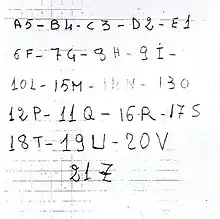 A5-B4-C3-D2-E1
6F-7G-8H-9I-
10L-15M-14N-13O
12P-11Q-16R-17S
18T-19U-20V
21Z